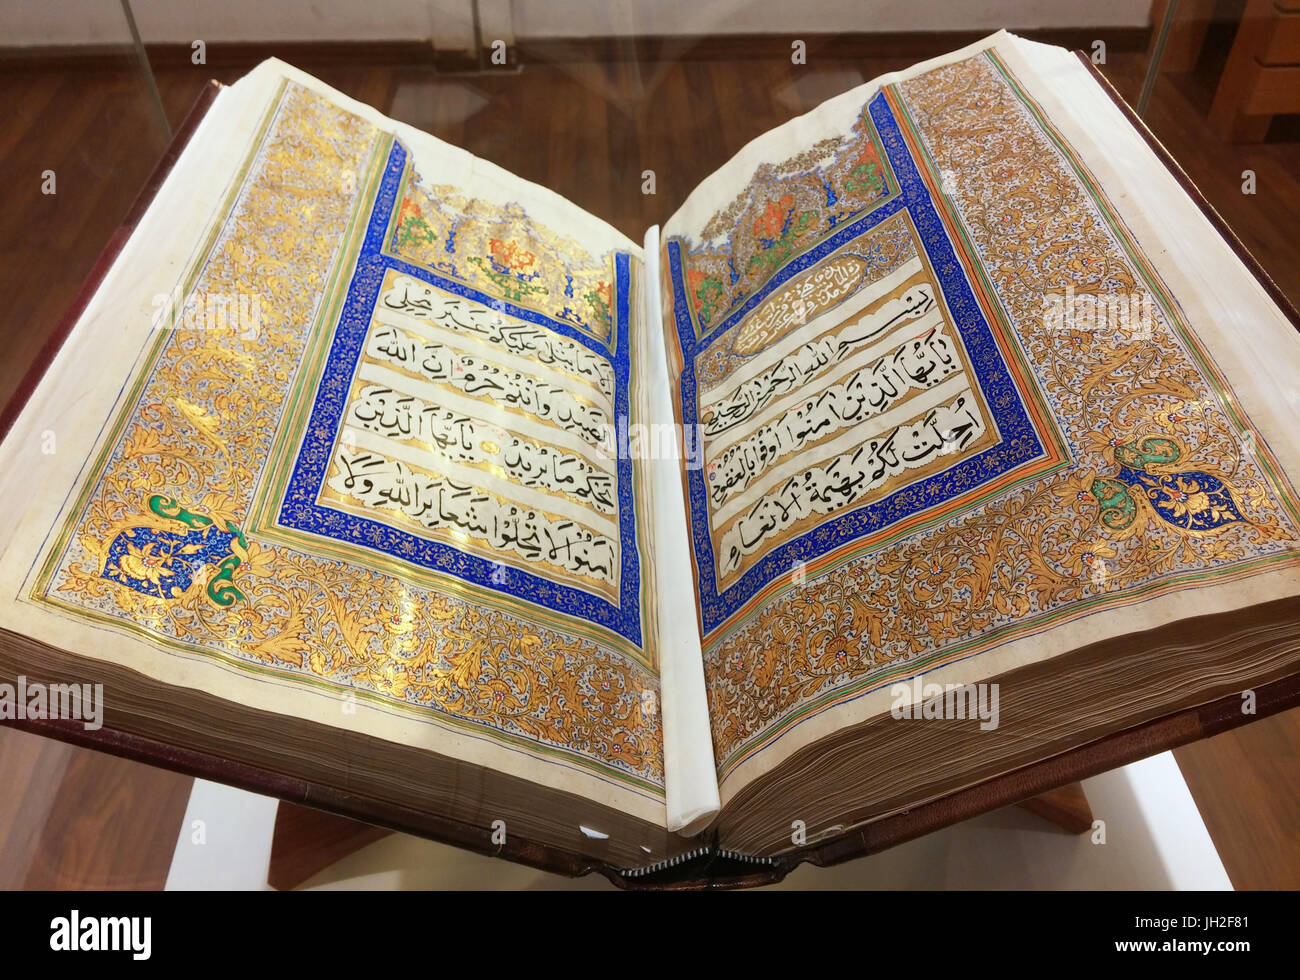 بسم الله الرحمن الرحيم
يا ايها الذين امنوا اوفوا بالعقود
احلت لكم بهيمة الانعام
الا ما يتلى عليكم غير محلى
الصيد وانتم حرم ان الله
يحكم ما يريد يا ايها الذين
امنوا لا تحلوا شعائر الله ولا
alamy
alamy
Image ID: JH2F81
www.alamy.com